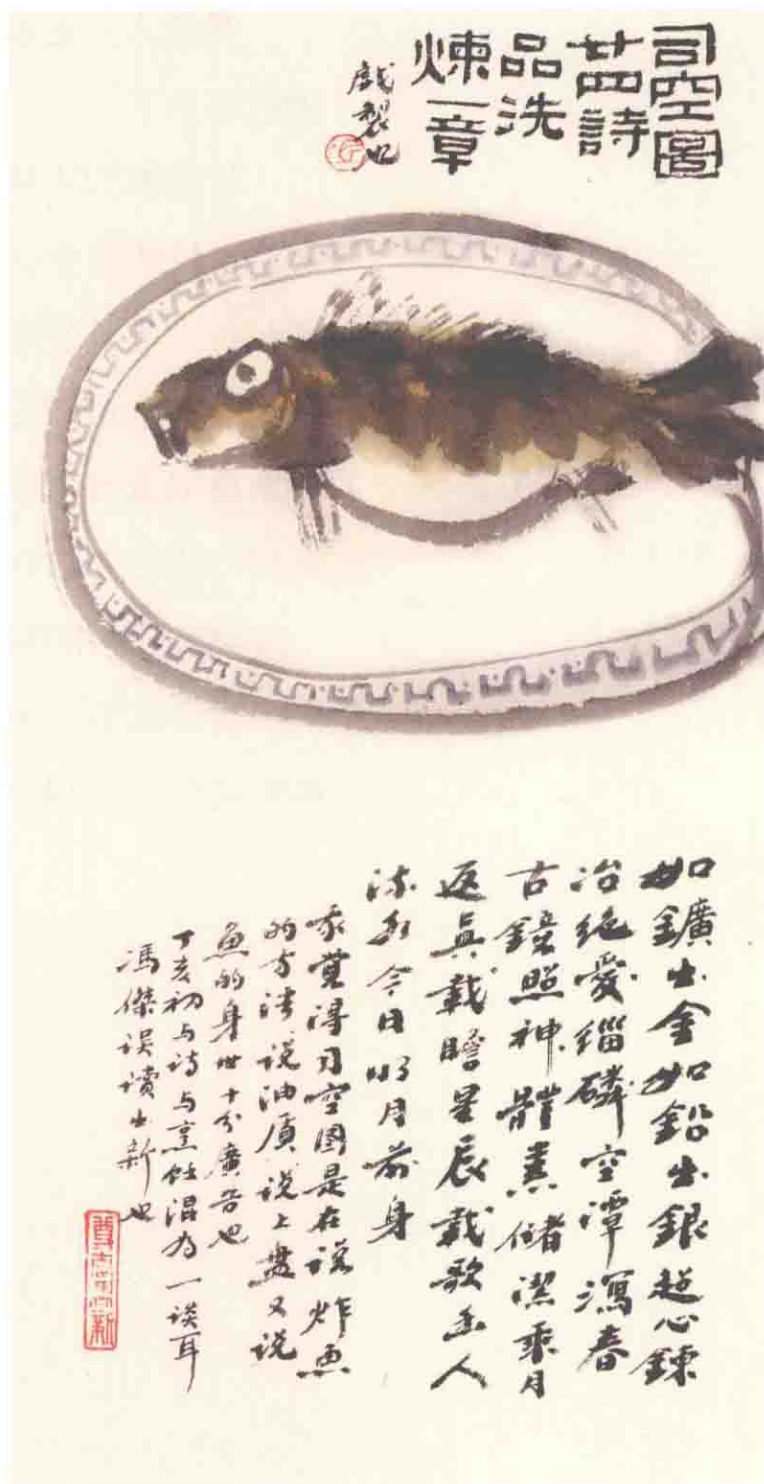 司空圖
廿四詩
品洗
煉一章
戲製也
如鑛出金如鉛出銀超心鍊
冶絕愛緇磷空潭瀉春
古鏡照神體素儲潔乘月
返真載瞻星辰載歌幽人
流水今日明月前身
我覺得司空图是在说炸魚
的方法说油质说上盘又说
魚的身世十分廣告也
丁亥初与诗与烹飪混为一谈耳
馮傑误读出新也